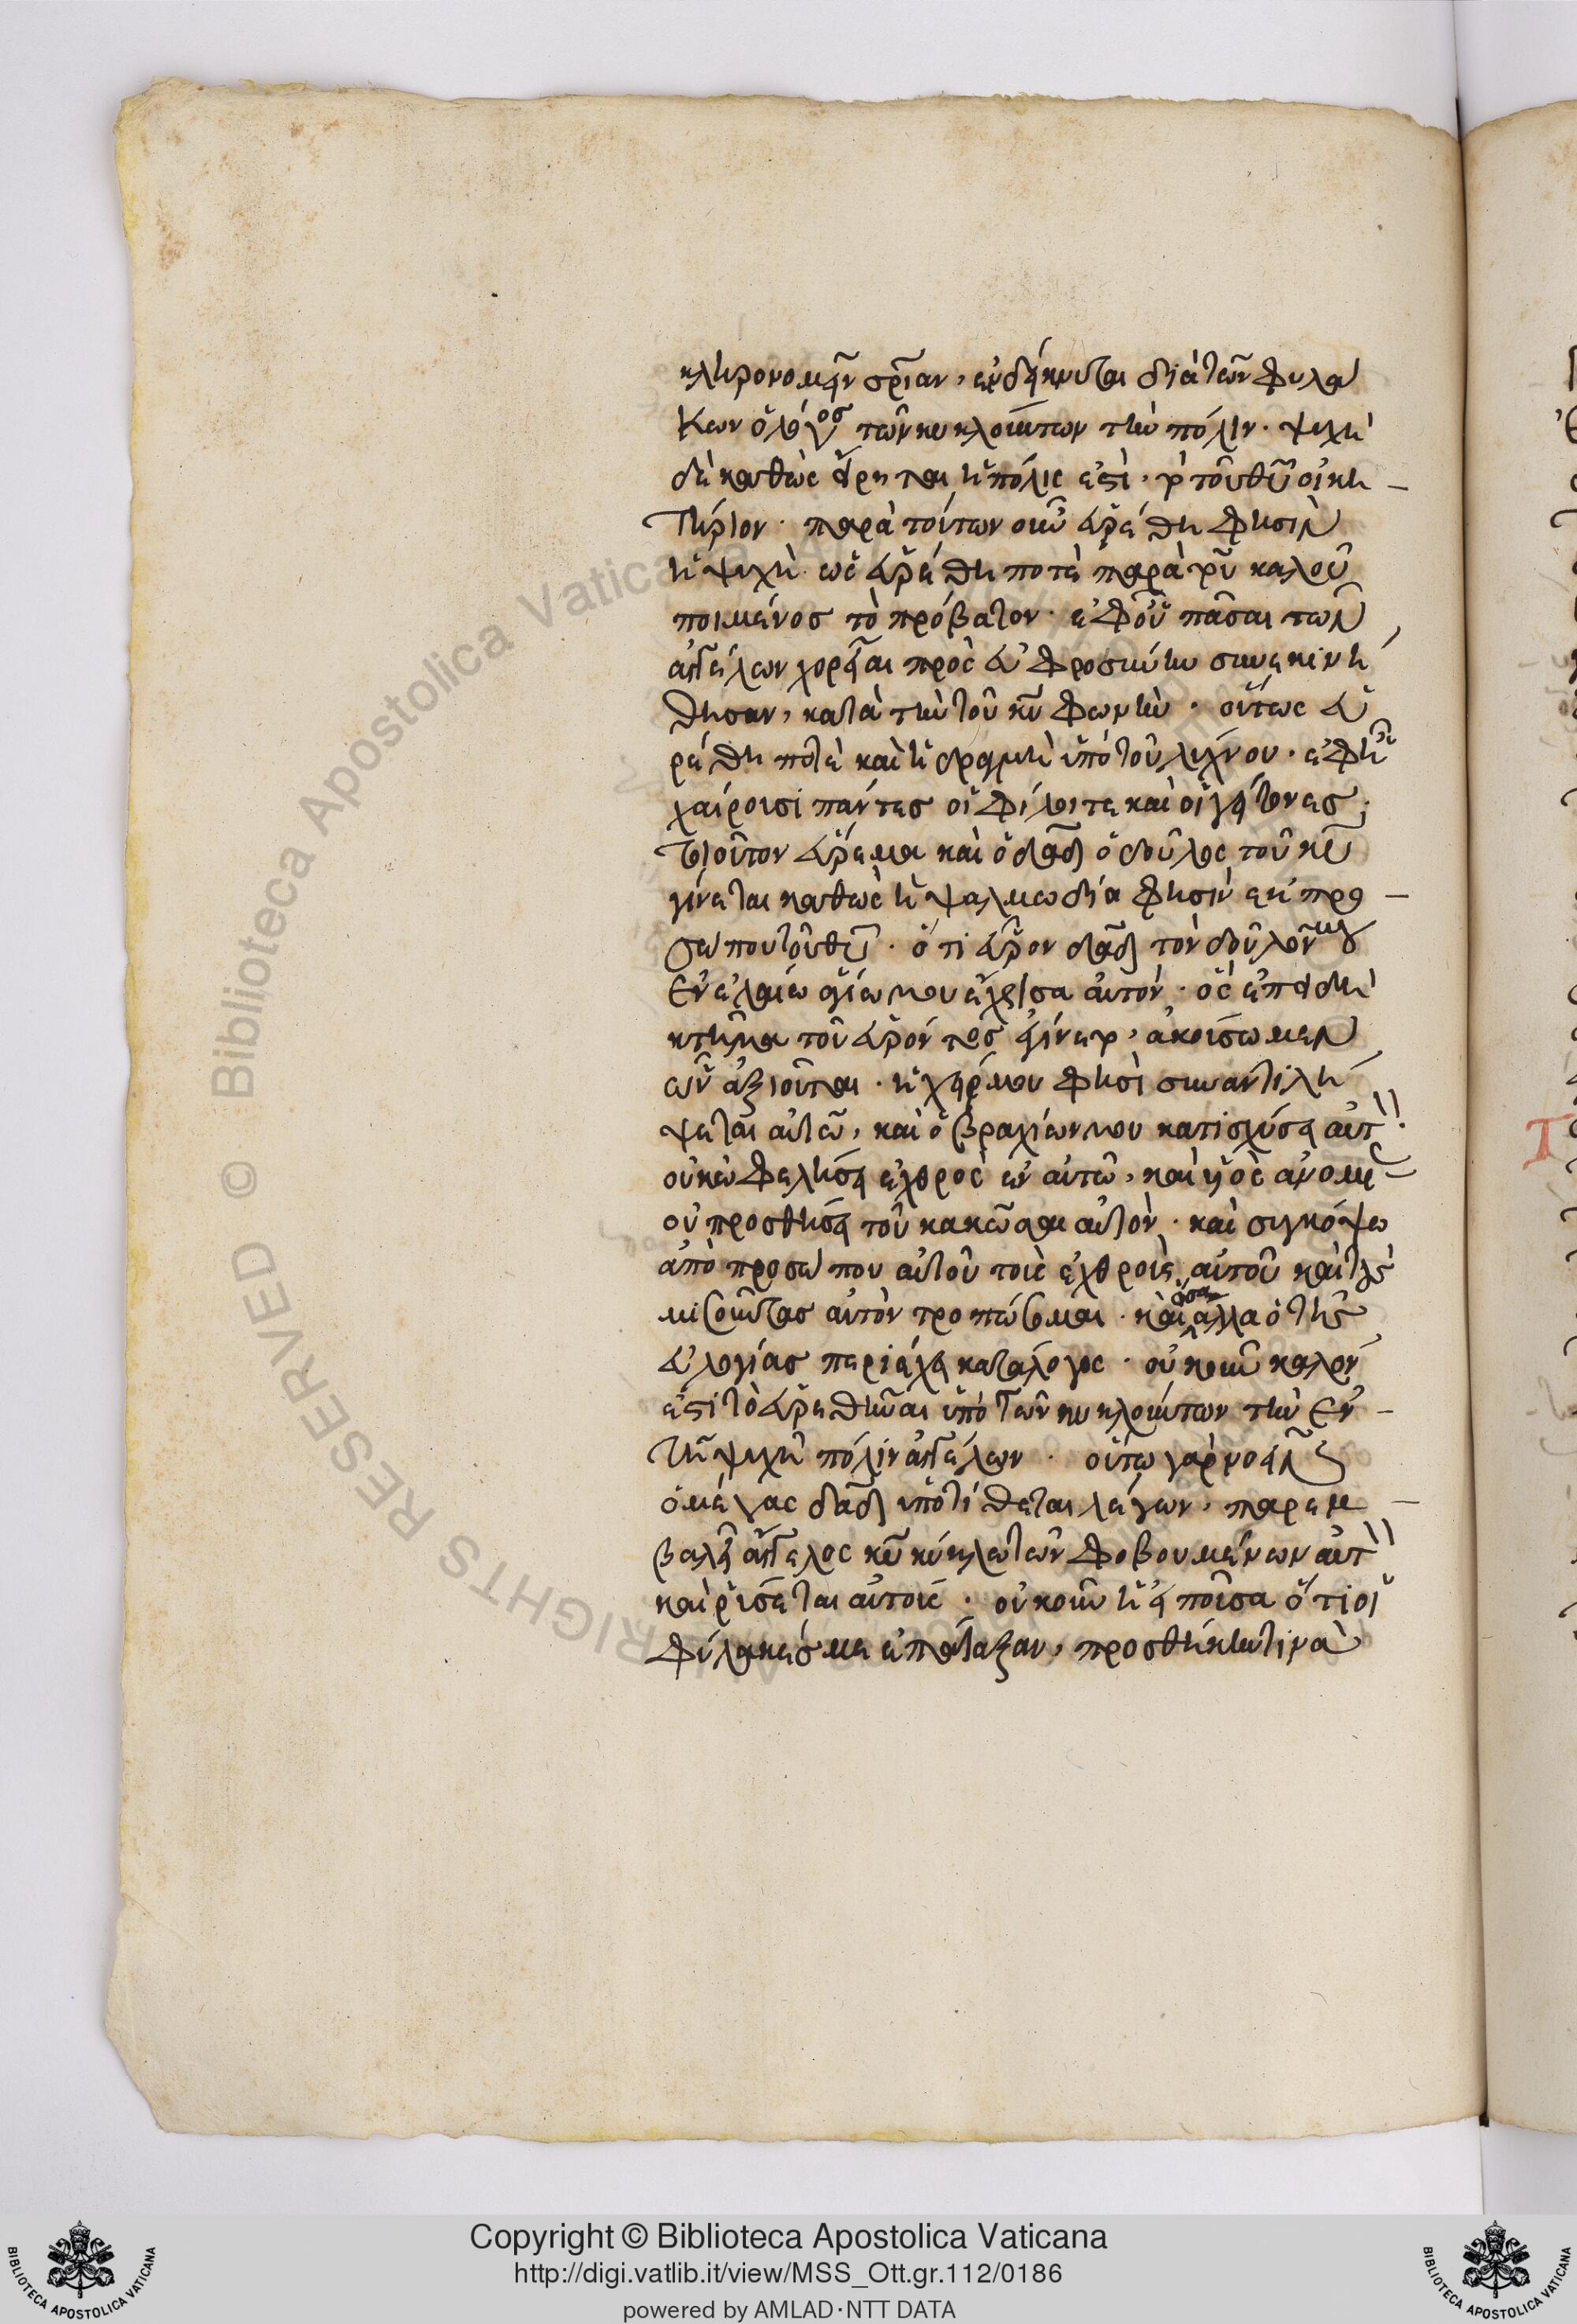 κληρονομεῖν σρίαν, ἐνδείκνυται διὰ τῶν φυλα
κων ὁ λόγος τῶν κυκλούντων τὴν πόλιν· ψυχὴ
δὲ καθὼς εἴρηται ἡ πόλις ἐστὶ, τὸ τοῦ θυ οἰκη
τήριον· παρὰ τούτων οὖν εὑρέθη φησὶν
ἡ ψυχὴ ὡς εὑρέθη ποτὲ παρὰ τοῦ καλοῦ
ποιμένος τὸ πρόβατον· ἐφ' οὗ πᾶσαι τῶν
ἀγγέλων χορεῖαι πρὸς εὐφροσύνην συνεκινή
θησαν, κατὰ τὴν τοῦ κυ φωνὴν· οὕτως εὑ
ρέθη ποτὲ καὶ ἡ δραχμὴ ὑπὸ τοῦ λύχνου· ἐφ' ἧ
χαίρουσι πάντες οἱ φίλοι τε καὶ οἱ γείτονες·
τοιοῦτον εὕρεμα καὶ ὁ δαδ ὁ δοῦλος τοῦ κυ
γίνεται καθὼς ἡ ψαλμωδία φησὶν ἐκ προ
σώπου τοῦ θυ· ὅτι εὗρον δαδ τὸν δοῦλόν μου
ἐν ἐλαίω ἁγίω μου ἔχρισα αὐτόν· ὃς ἐπειδὴ
κτῆμα τοῦ εὑρόντος ἐγίνετο, ἀκούσωμεν
ὧν ἀξιοῦται· ἡ χείρ μου φησὶ συναντιλή
ψεται αὐτῶ, καὶ ὁ βραχίων μου κατισχύσει αὐτ
οὐκ ὠφελήσει ἐχθρὸς ἐν αὐτῶ, καὶ υἱὸς ἀνομί
οὐ προσθήσει τοῦ κακῶσαι αὐτὸν· καὶ συγκόψω
ἀπὸ προσώπου αὐτοῦ τοὺς ἐχθροὺς αὐτοῦ καὶ τοὺς
μισοῦντας αὐτὸν τροπώσομαι· καὶ ὅσα ἄλλα ὁ τῆς
εὐλογίας περιέχει κατάλογος· οὐκοῦν καλόν
ἐστι τὸ εὑρεθῆναι ὑπὸ τῶν κυκλούντων τὴν ἐν
τῆ ψυχῆ πόλιν ἀγγέλων· οὕτω γὰρ νοεῖν
ὁ μέγας δαδ ὑποτίθεται λέγων, παρεμ
βαλεῖ ἄγγελος κυ κύκλω τῶν φοβουμένων αὐτ
καὶ ῥύσεται αὐτοὺς· οὐκοῦν ἡ εἰποῦσα ὅτι οἱ
φύλακές με ἐπάταξαν, προσθήκην τινὰ
Copyright © Biblioteca Apostolica Vaticana
http://digi.vatlib.it/view/MSS_Ott.gr.112/0186
powered by AMLAD·NTT DATA